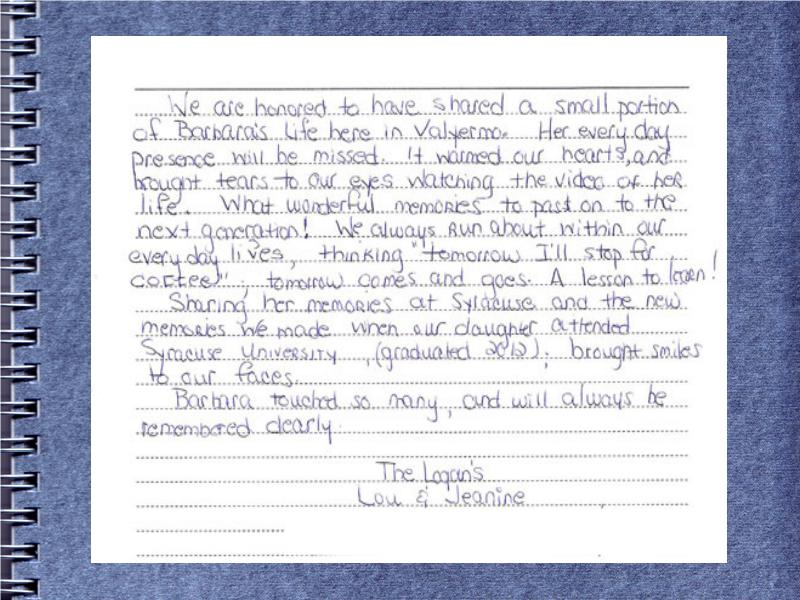 We are honored to have shared a small portion
of Barbara's life here in Valyermo. Her every day
presence will be missed. It warmed our hearts, and
brought tears to our eyes watching the video of her
life. What wonderful memories to past on to the
next generation! We always run about within our
every day lives, thinking "tomorrow I'll stop for
coffee)", tomorrow comes and goes. A lesson to learn!
Sharing her memories at Syracuse and the new
memories we made when our daughter attended
Syracuse University, (graduated 2012), brought smiles
to our faces.
Barbara touched so many, and will always be
remembered clearly
The Logan's
Lou & Jeanine